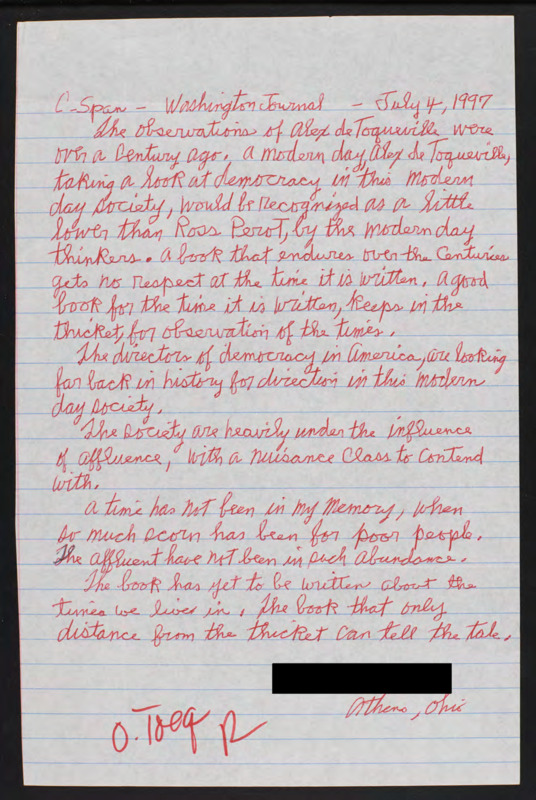 C-Span - Washington Journal - July 4, 1997
The observations of Alex de Toqueville were
over a century ago. A modern day, Alex de Toqueville,
taking a look at democracy in this modern
day society, would be recognized as a little
lower than Ross Perot, by the modern day
thinkers. A book that endures over the Centuries
gets no respect at the time it is written. A good
book for the time it is written, keeps in the
thicket, for observation of the times.
The directors of democracy in America, are looking
far back in history for direction in this modern
day society.
The society are heavily under the influence
of affluence, with a nuisance Class to Contend
with.
A time has not been in my memory, when
so much scorn has been for poor people.
The affluent have not been in such abundance.
The book has yet to be written about the
times we lives in. The book that only
distance from the thicket can tell the tale.
Athens, Ohio
O. Toeq R